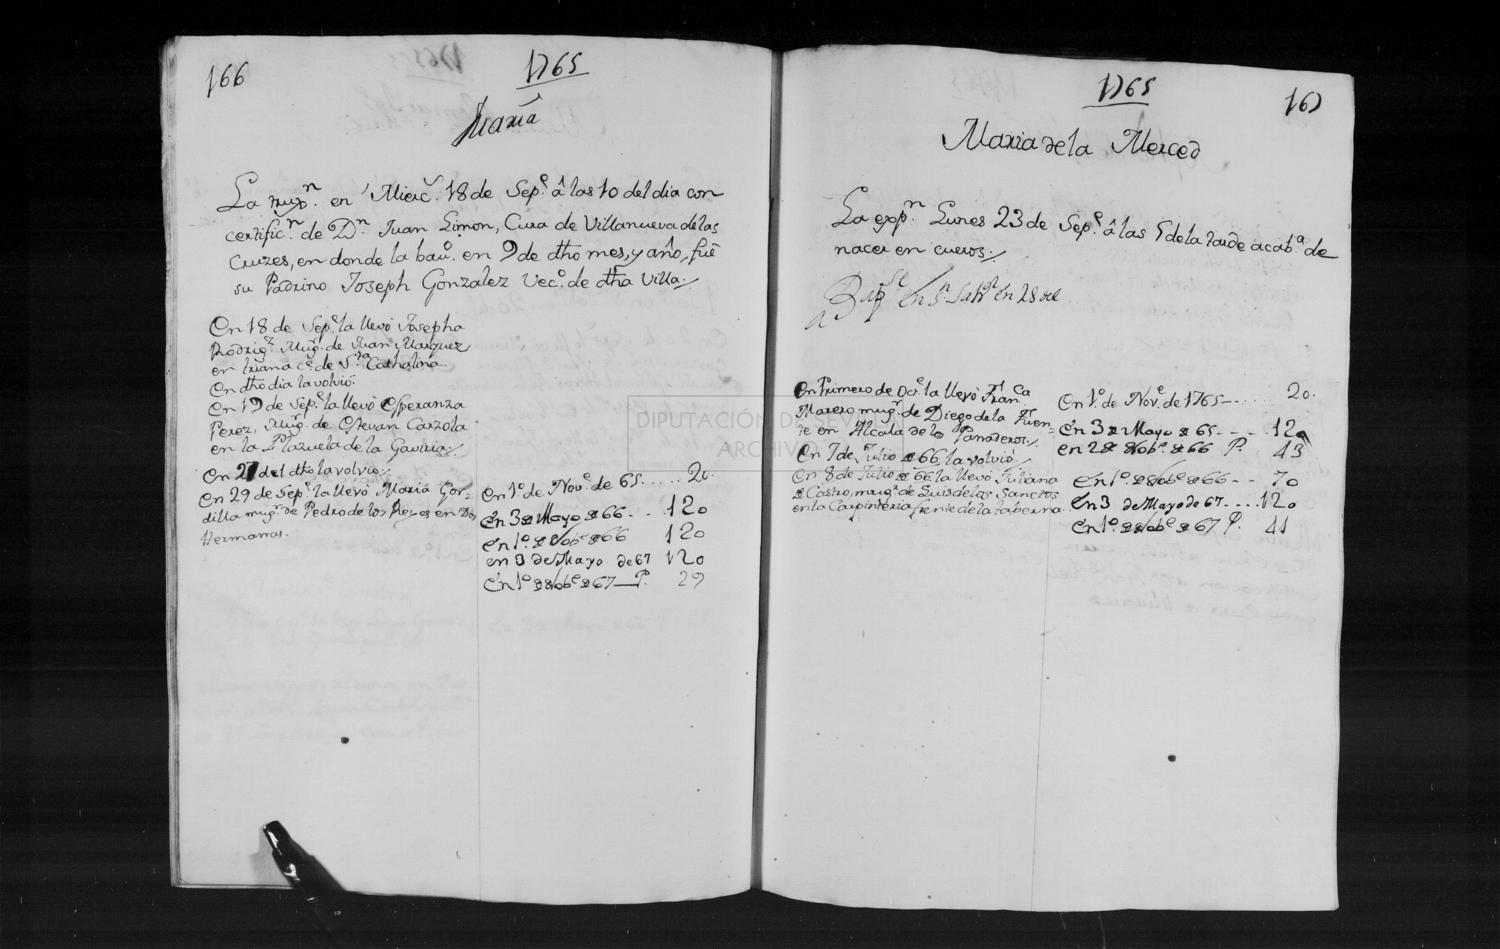 166
1765
Maria
La trux.n en Mierc.s 18 de Sep.e â las 10 del dia con
certific.n de D.n Juan Limon, Cura de Villanueva de las
Cruzes, en donde la bau.o en 9 de dho mes, y año, fue
su Padrino Joseph Gonzalez Vec.o de dha Villa.
En 18 de Sep.e la llevó Josepha
Rodrig.z Mug.r de Juan Marquez
en triana c.e de S.ta Cathalina
En dho dia la volvió.
En 19 de Sep.e la llevó Esperanza
Perez, Mug.r de Estevan Cazzola
en la Plazuela de la Gaviria
En 27 del dho la volvio
En 29 de Sep.e la llevó Maria Gor-
dilla mug.r de Pedro de los Reyes en Dos
Hermanas.
En 1.o de Nov.e de 65 ...... 20.
En 3 de Mayo de 66 - .. 120
En 1.o de Nob.e de 66 120
en 3 de Mayo de 67 120
En 1.o de Nob.e de 67 P. 29
1765
167
Maria de la Merced
La exp.n Lunes 23 de Sep.e â las 5 de la tarde acab.a de
nacer en cueros.
Bap.se en S.n Salv.r en 28 del
En Primero de Oct.e la llevó Fran.ca
Marero mug.r de Diego de la Fuen-
te en Alcala de los Panaderos.
En 7 de Julio de 66, la volvió
En 8 de Julio de 66, la llevó Juliana
de Castro, mug.r de Luis de los Sanctos
en la Carpinteria frente de la taberna
En 1.o de Nov.e de 1765 - ..... 20.
En 3 de Mayo de 65 - .... 120
en 2 de Nob.e de 66 P. 43
En 1.o de Nob.e de 66 - - 70
En 3 de Mayo de 67 ..... 120
En 1.o de Nob.e de 67 P. 41
DIPUTACIÓN DE SEVILLA
ARCHIVO